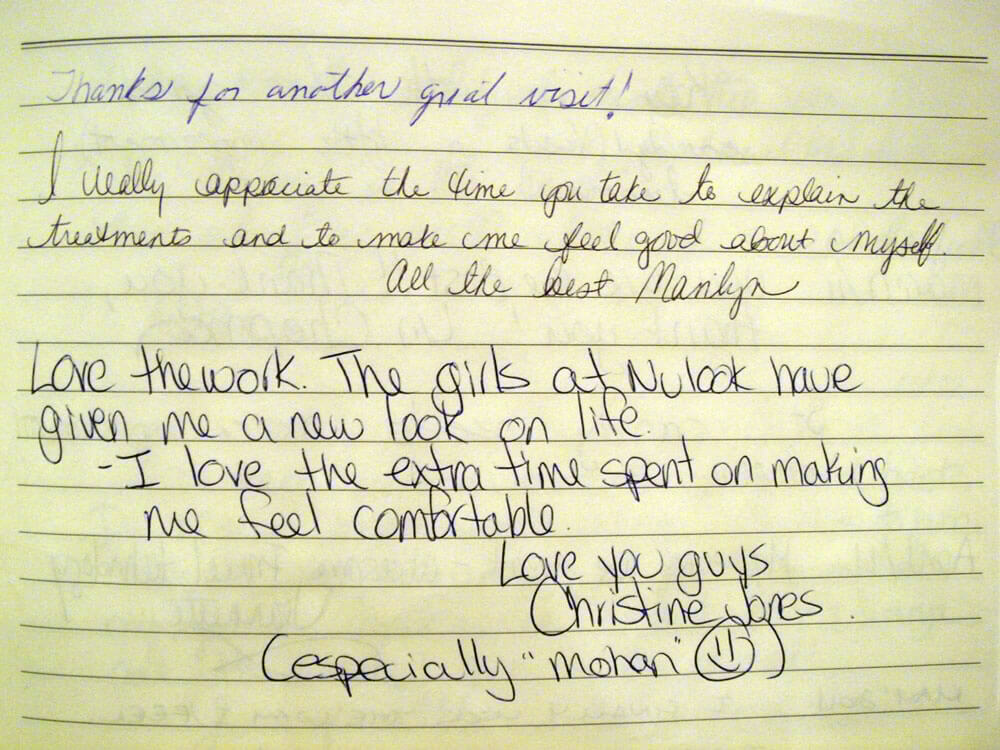 Thanks for another great visit!
I really appreciate the time you take to explain the
treatments and to make me feel good about myself.
All the best Marilyn
Love the work. The girls at Nulook have
given me a new look on life.
- I love the extra time spent on making
me feel comfortable.
Love ya guys
Christine Jones.
(especially "mohan" )